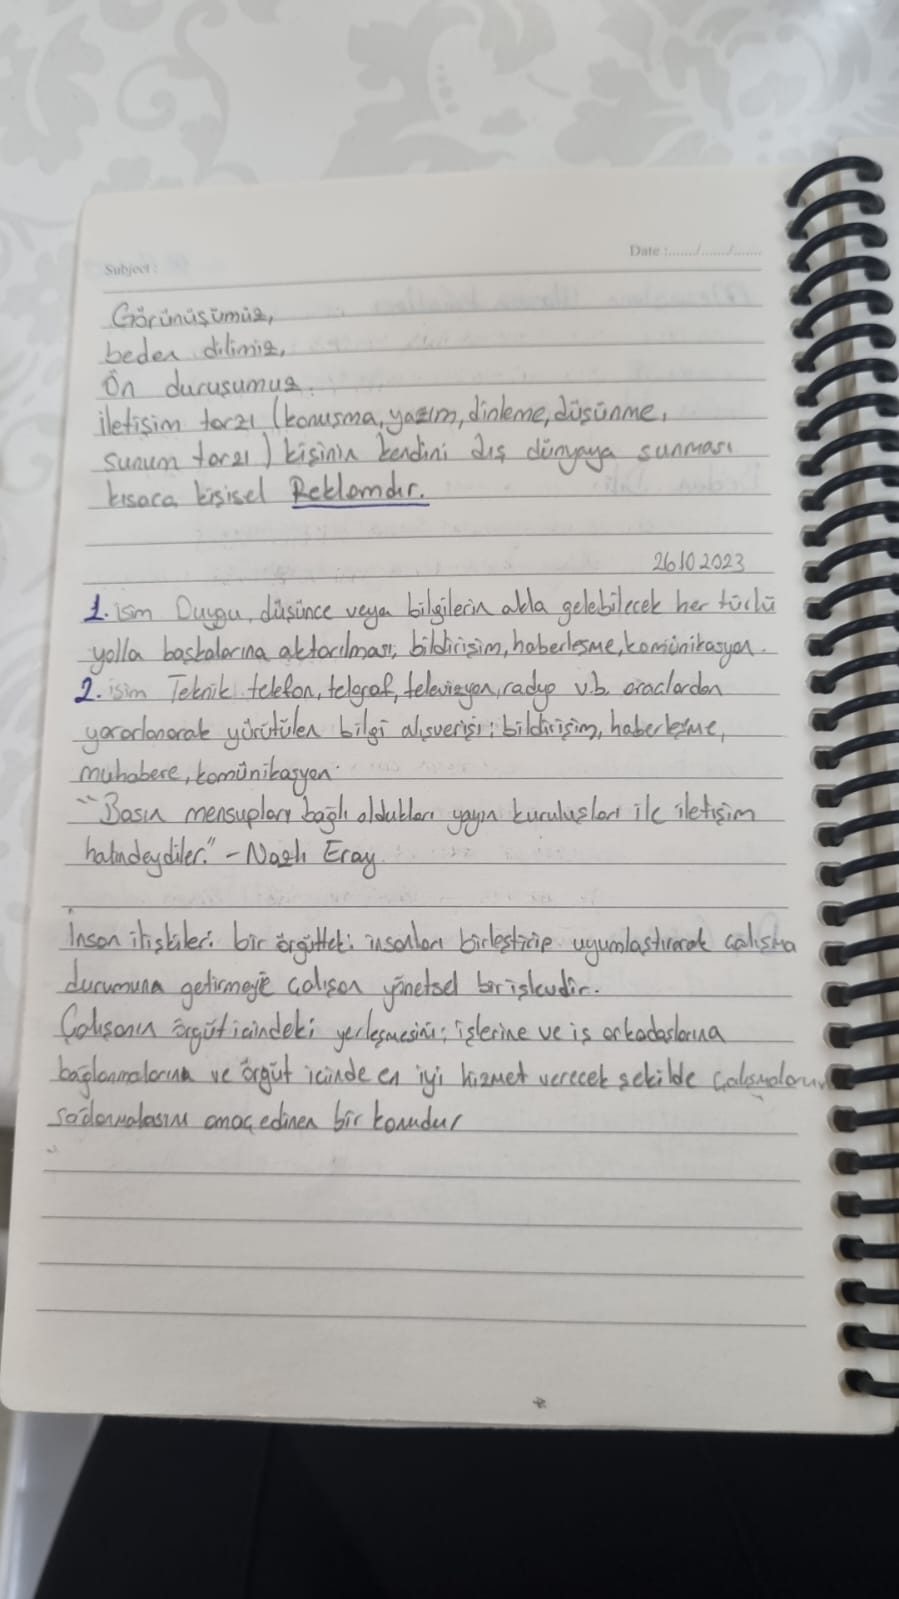 Subject :
Date :....../....../......
Görünüşümüz,
beden dilimiz,
Ön duruşumuz.
iletişim tarzı (konuşma, yazım, dinleme, düşünme,
sunum tarzı) kişinin kendini dış dünyaya sunması
kısaca kişisel Reklamdır.
26.10.2023
1. isim Duygu, düşünce veya bilgilerin akla gelebilecek her türlü
yolla başkalarına aktarılması, bildirişim, haberleşme, komünikasyon.
2. isim Teknik telefon, telgraf, televizyon, radyo v.b. araçlardan
yararlanarak yürütülen bilgi alışverişi; bildirişim, haberleşme,
muhabere, komünikasyon.
"Basın mensupları bağlı oldukları yayın kuruluşları ile iletişim
halindeydiler." - Nazlı Eray
İnsan ilişkileri bir örgütteki insanları birleştirip uyumlaştırarak çalışma
durumuna getirmeye çalışan yönetsel bir işlevdir.
Çalışanın örgüt içindeki yerleşmesini; işlerine ve iş arkadaşlarına
bağlanmalarına ve örgüt içinde en iyi hizmet verecek şekilde çalışmalarını
amaç edinen bir konudur